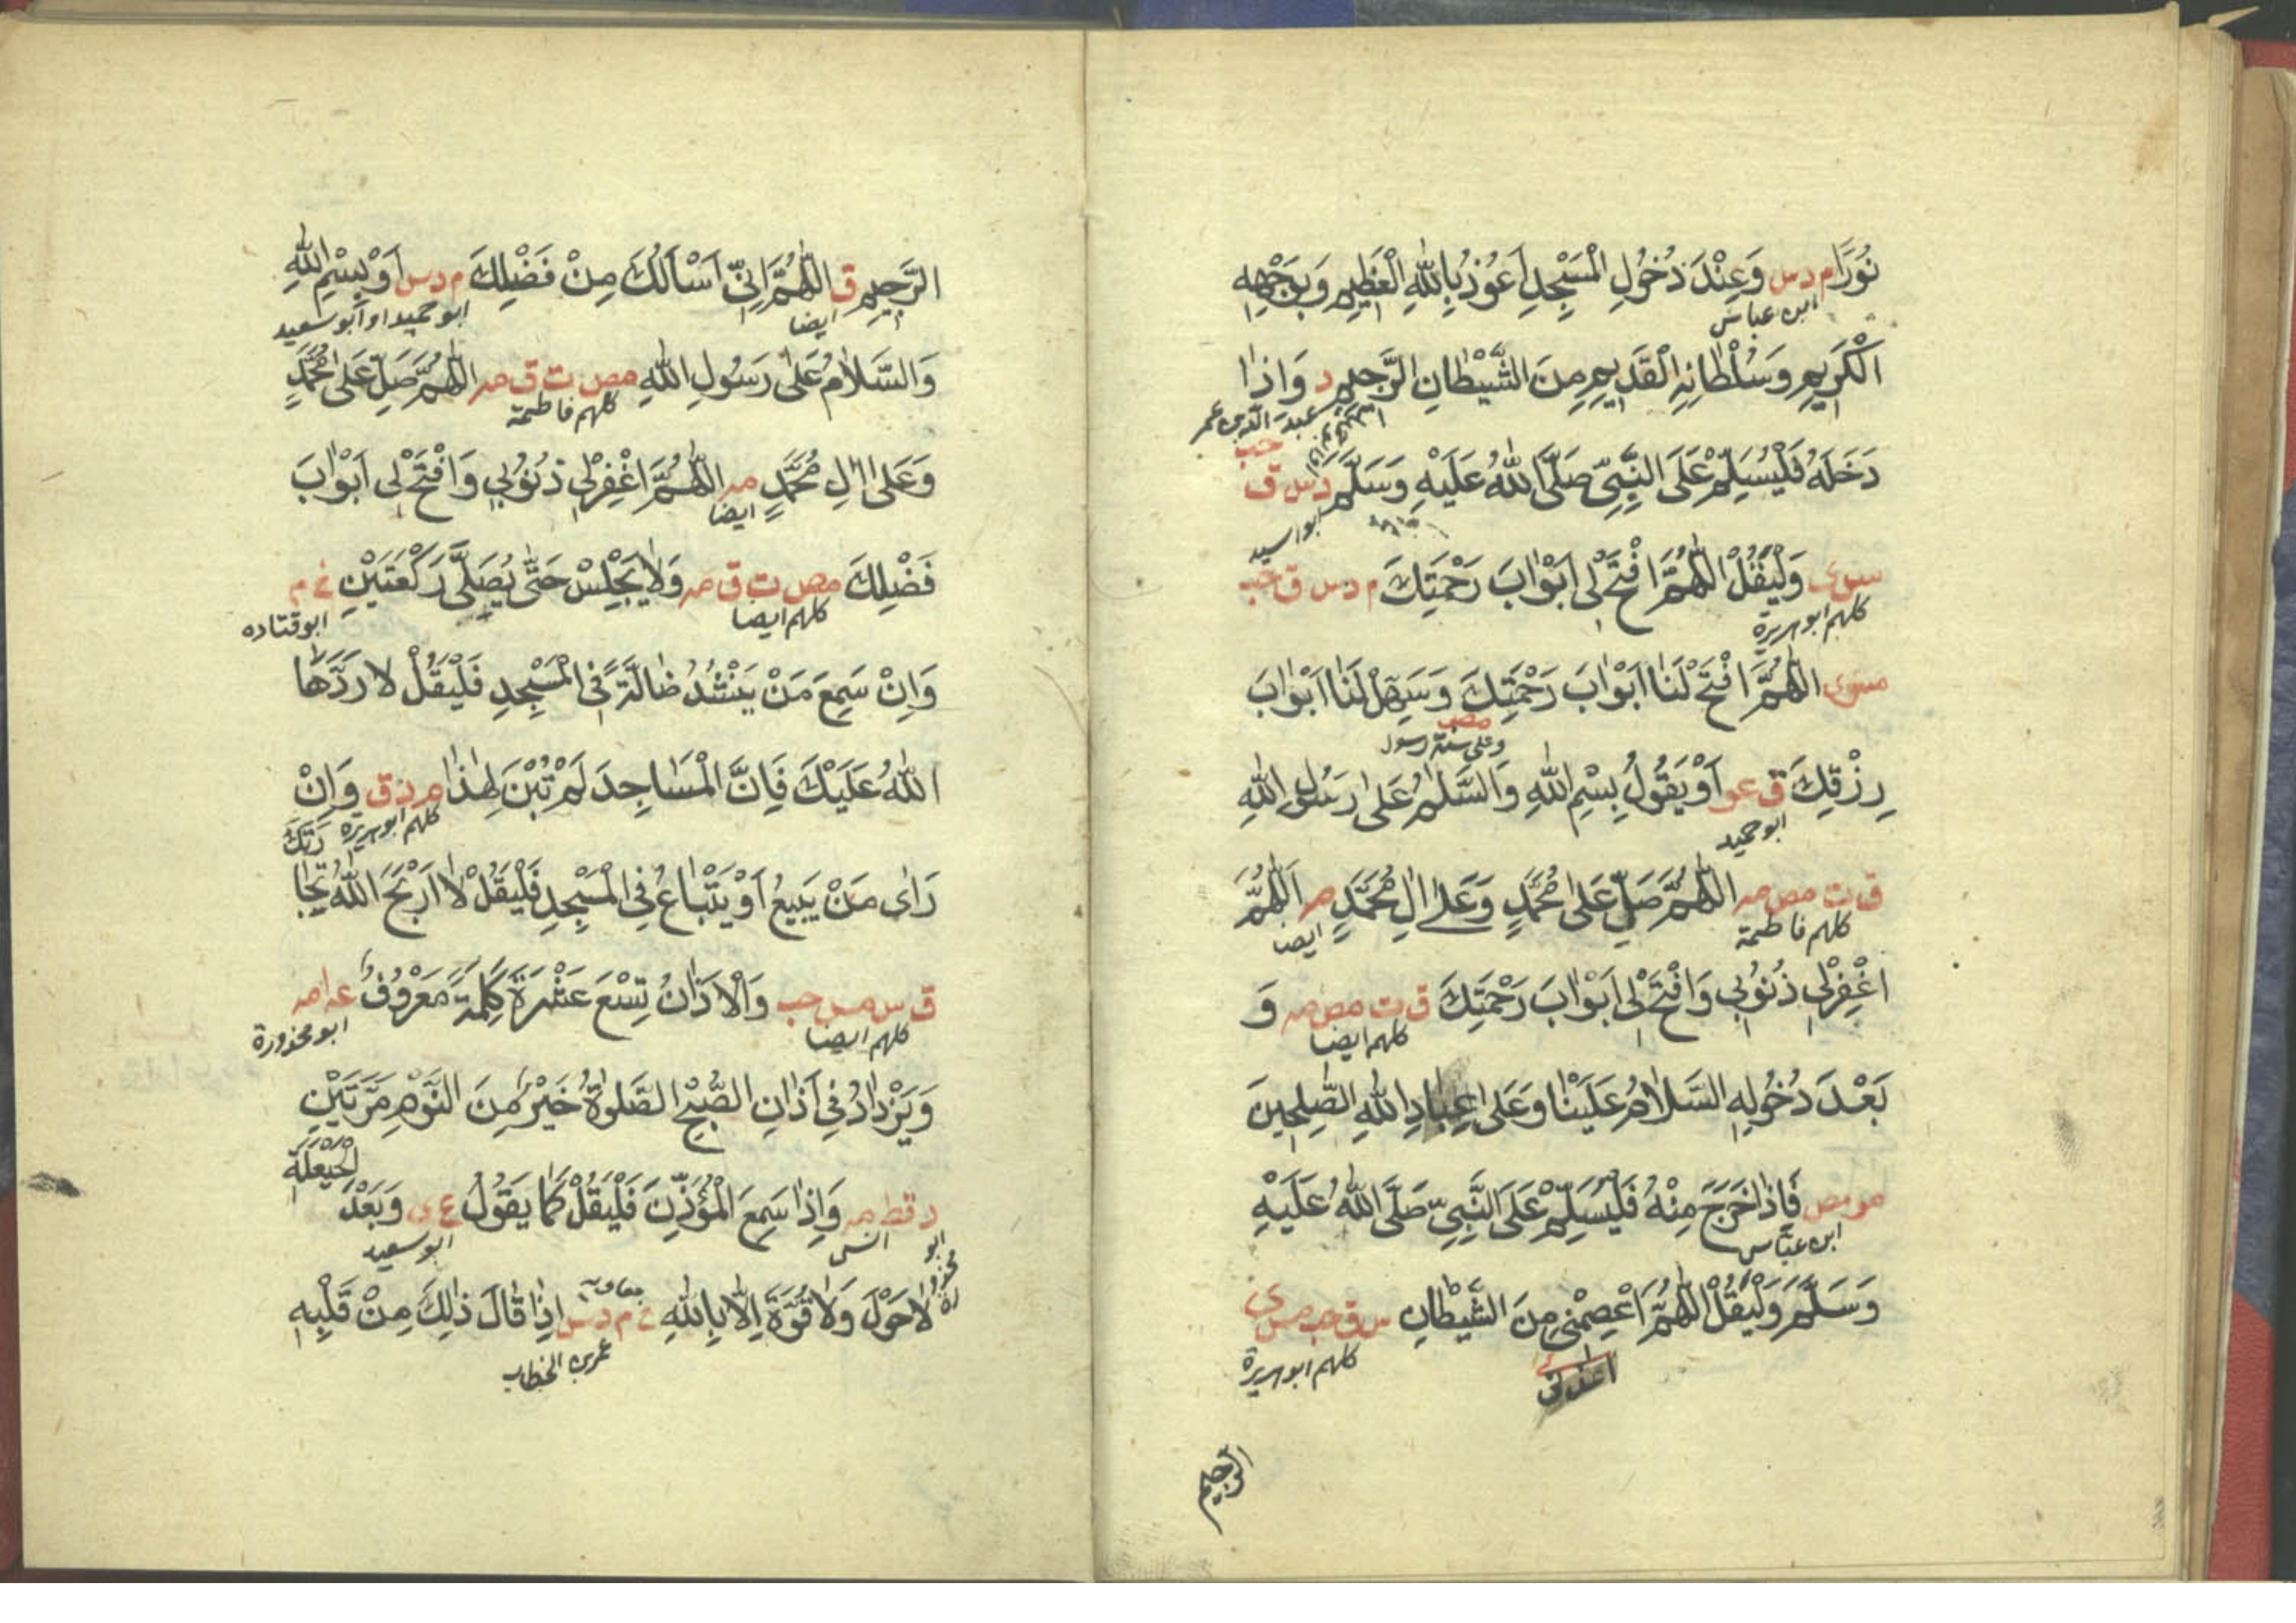 نُوْرًا م د س وَعِنْدَ دُخُوْلِ الْمَسْجِدِ اَعُوْذُ بِاللّٰهِ الْعَظِيْمِ وَبِوَجْهِهِ
ابن عباس
الْكَرِيْمِ وَسُلْطَانِهِ الْقَدِيْمِ مِنَ الشَّيْطَانِ الرَّجِيْمِ د وَاِذَا
عبد الله بن عمر
دَخَلَهُ فَلْيُسَلِّمْ عَلَى النَّبِيِّ صَلَّى اللّٰهُ عَلَيْهِ وَسَلَّمَ د س ق حب
سوى وَلْيَقُلْ اللّٰهُمَّ افْتَحْ لِيْ اَبْوَابَ رَحْمَتِكَ م د س ق حب
كلهم ابو هريرة
مسوى اللّٰهُمَّ افْتَحْ لَنَا اَبْوَابَ رَحْمَتِكَ وَسَهِّلْ لَنَا اَبْوَابَ
مص وعلى سنة رسول
رِزْقِكَ ق عو اَوْ يَقُوْلُ بِسْمِ اللّٰهِ وَالسَّلٰمُ عَلٰى رَسُوْلِ اللّٰهِ
ابو حميد
ق ت مص مه اللّٰهُمَّ صَلِّ عَلٰى مُحَمَّدٍ وَعَلٰى اٰلِ مُحَمَّدٍ مه اَللّٰهُمَّ
كلهم فاطمة ايضا
اغْفِرْلِيْ ذُنُوْبِيْ وَافْتَحْ لِيْ اَبْوَابَ رَحْمَتِكَ ق ت مص مه وَ
كلهم ايضا
بَعْدَ دُخُوْلِهِ السَّلَامُ عَلَيْنَا وَعَلٰى عِبَادِ اللّٰهِ الصّٰلِحِيْنَ
مو مص فَاِذَا خَرَجَ مِنْهُ فَلْيُسَلِّمْ عَلَى النَّبِيِّ صَلَّى اللّٰهُ عَلَيْهِ
ابن عباس
وَسَلَّمَ وَلْيَقُلْ اللّٰهُمَّ اعْصِمْنِيْ مِنَ الشَّيْطَانِ س ق حب مس ى
كلهم ابو هريرة
الرجيم
الرَّجِيْمِ ق اللّٰهُمَّ اِنِّيْ اَسْاَلُكَ مِنْ فَضْلِكَ م د س اَوْ بِسْمِ اللّٰهِ
ايضا ابو حميد او ابو سعيد
وَالسَّلَامُ عَلٰى رَسُوْلِ اللّٰهِ مص ت ق مه اللّٰهُمَّ صَلِّ عَلٰى مُحَمَّدٍ
كلهم فاطمة
وَعَلٰى اٰلِ مُحَمَّدٍ مه اللّٰهُمَّ اغْفِرْلِيْ ذُنُوْبِيْ وَافْتَحْ لِيْ اَبْوَابَ
ايضا
فَضْلِكَ مص ت ق مه وَلَا يَجْلِسْ حَتّٰى يُصَلِّيَ رَكْعَتَيْنِ خ م
كلهم ايضا ابو قتاده
وَاِنْ سَمِعَ مَنْ يَنْشُدُ ضَالَّةً فِي الْمَسْجِدِ فَلْيَقُلْ لَا رَدَّهَا
اللّٰهُ عَلَيْكَ فَاِنَّ الْمَسَاجِدَ لَمْ تُبْنَ لِهٰذَا م د ق وَاِنْ
كلهم ابو هريرة
رَاٰى مَنْ يَبِيْعُ اَوْ يَبْتَاعُ فِي الْمَسْجِدِ فَلْيَقُلْ لَا اَرْبَحَ اللّٰهُ تِجَا
رَتَكَ
ق س مس حب وَالْاَذَانُ تِسْعَ عَشْرَةَ كَلِمَةً مَعْرُوْفٌ عه امه
كلهم ايضا ابو محذورة
وَيَزْدَادُ فِيْ اَذَانِ الصُّبْحِ الصَّلٰوةُ خَيْرٌ مِّنَ النَّوْمِ مَرَّتَيْنِ
د قط مه وَاِذَا سَمِعَ الْمُؤَذِّنَ فَلْيَقُلْ كَمَا يَقُوْلُ ع ى وَبَعْدَ الْحَيْعَلَةِ
ابو محذورة انس ابو سعيد
لَا حَوْلَ وَلَا قُوَّةَ اِلَّا بِاللّٰهِ خ م د س اِذَا قَالَ ذٰلِكَ مِنْ قَلْبِهِ
معاوية عمر بن الخطاب